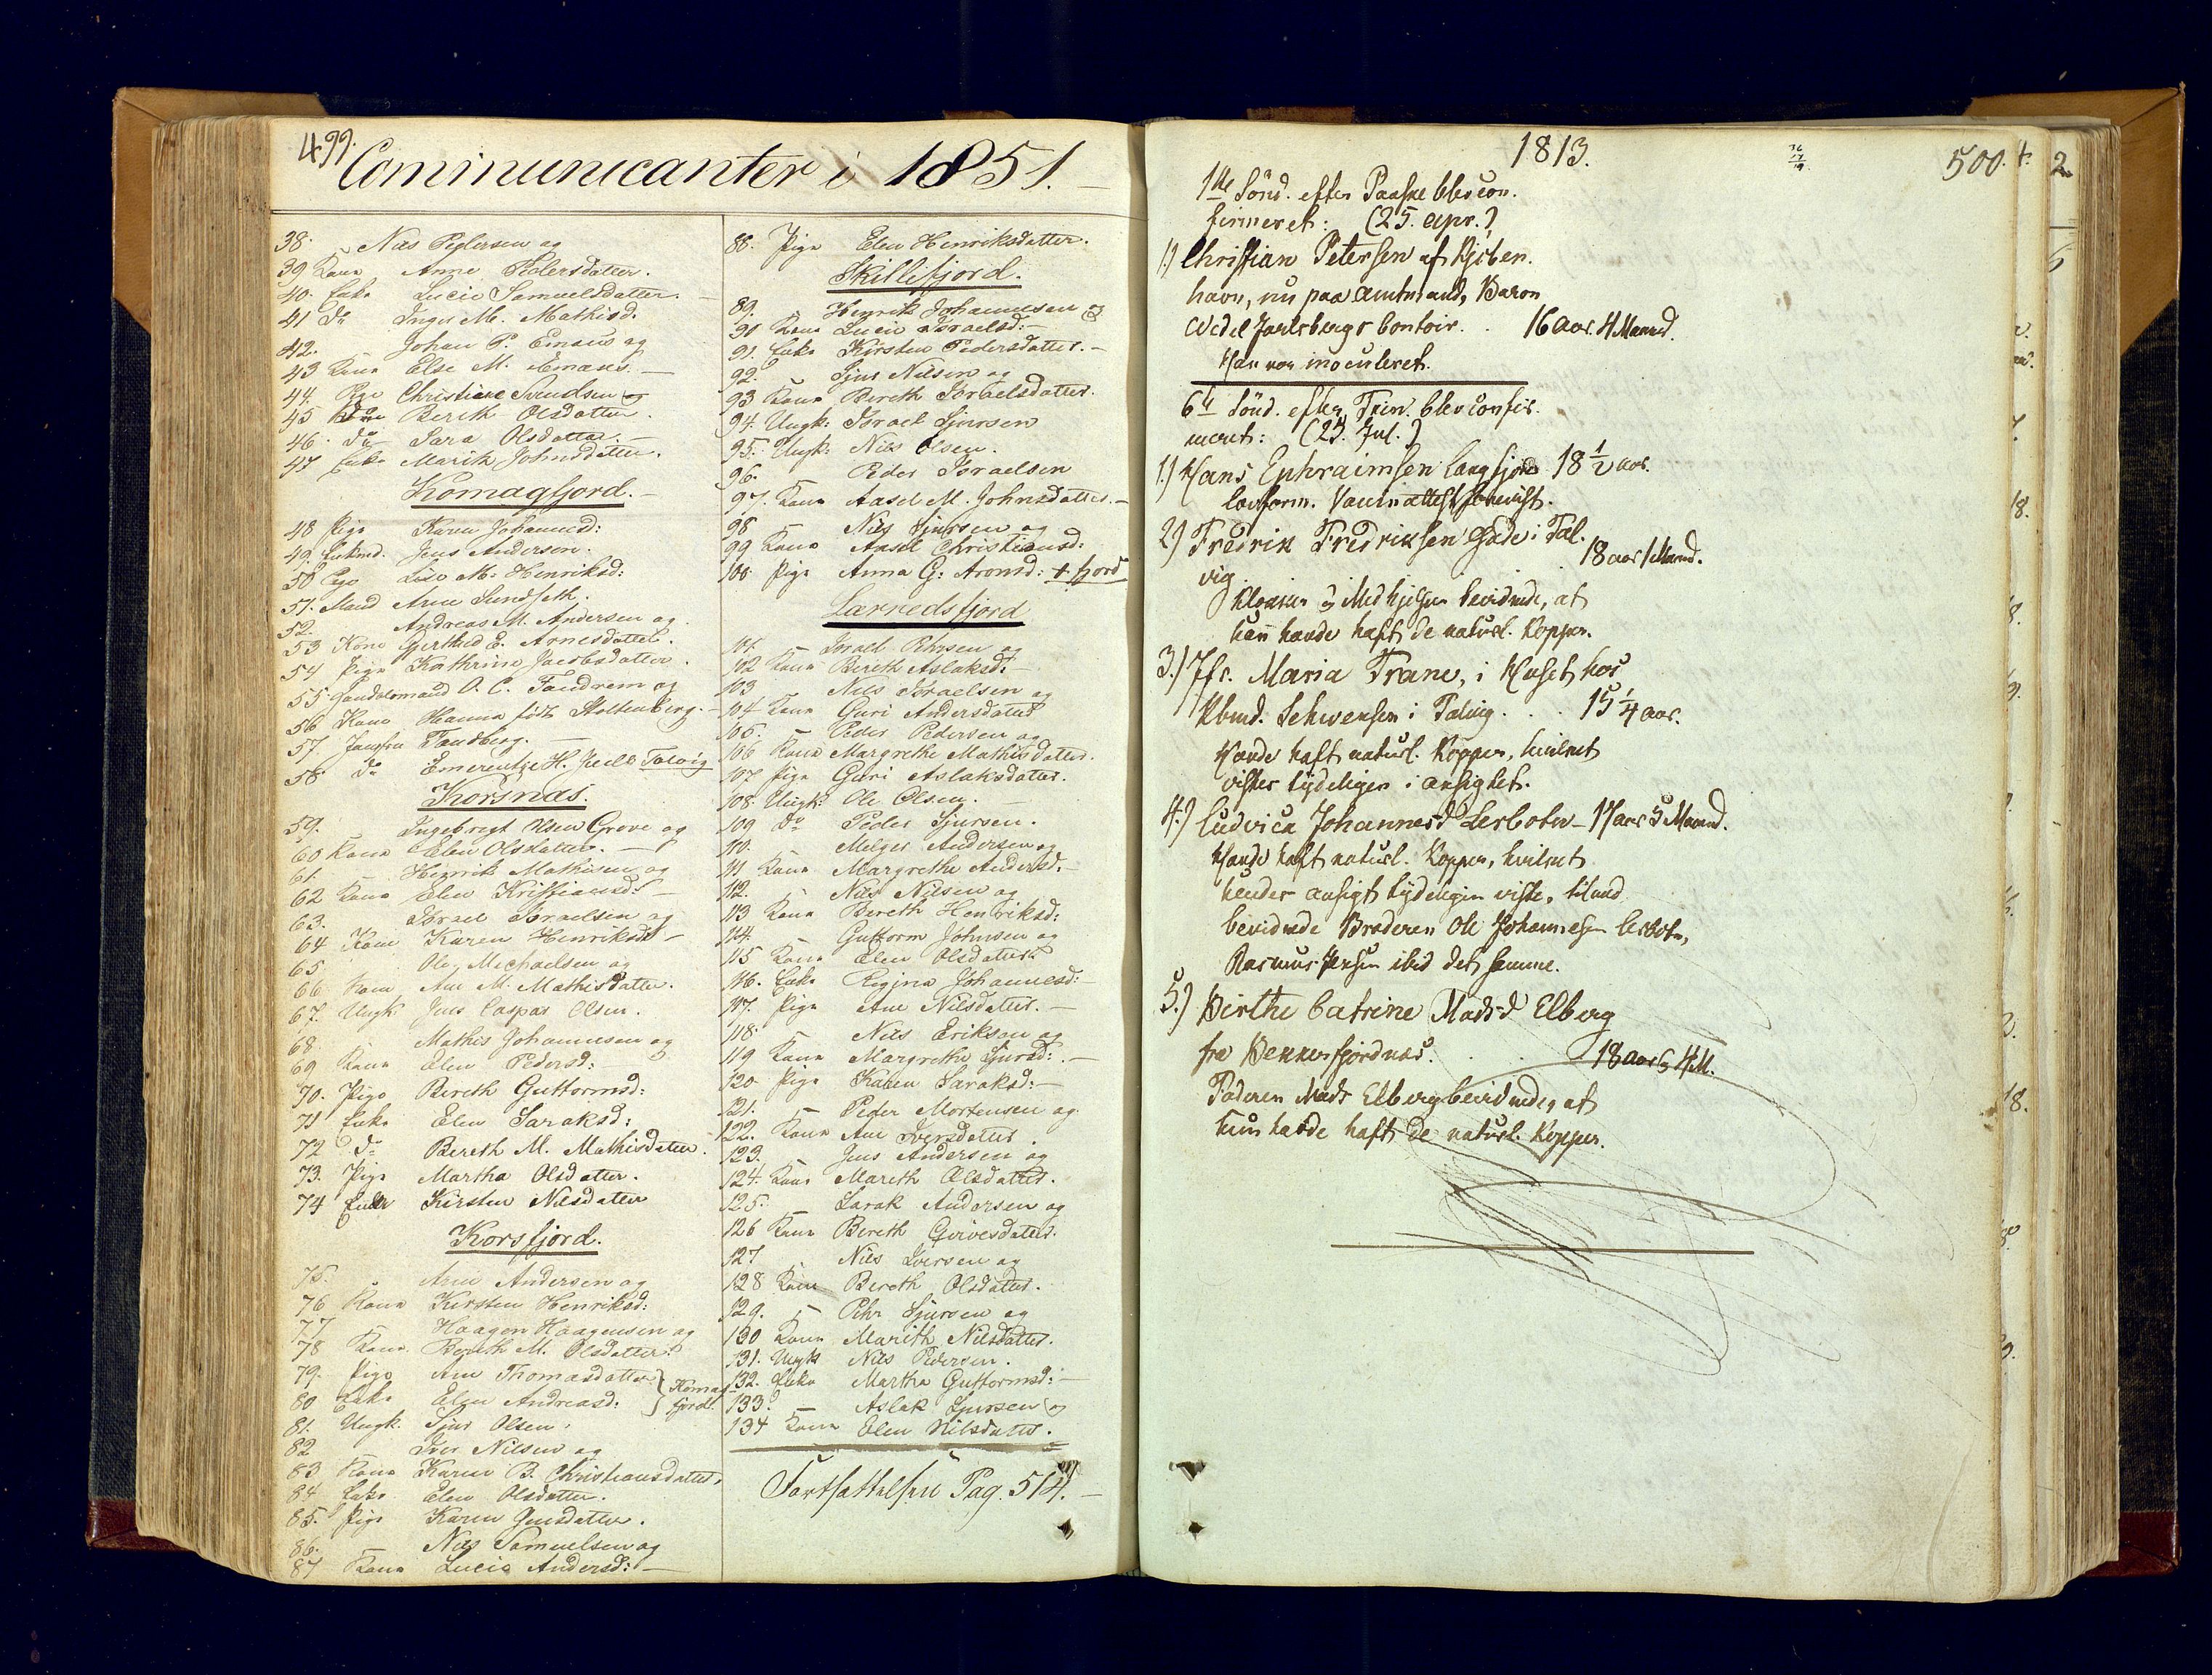 499.
Communicanter i 1851.
38. Nils Pedersen og
39 Kone Anne Pedersdatter.
40. Enke Lucie Samuelsdatter.
41 Do Inger M. Mathisd:
42. Johan P. Emaus og
43 Kone Else M. Emaus.
44. Pige Christiane Svendsen og
45 Do Berith Olsdatter.
46. Do Sara Olsdatter.
47 Enke Marith Johnsdatter.
Komagfjord.
48 Pige Karen Johannesd:
49 Enkmd. Jens Andersen.
50 Pige Lise M. Henriksd:
51. Mand Arne Sundseth.
52. Andreas M. Andersen og
53 Kone Gjerthrud E. Arnesdatter.
54 Pige Kathrine Jacobsdatter.
55. Handelsmand O. C. Fandrem og
56 Kone Hanna født Stoltenberg.
57 Jomfru Tandberg.
58 do Emerentze H. Talvig
Korsnæs.
59. Ingebregt Olsen Grove og
60 Kone Elen Olsdatter.
61. Henrik Mathisen og
62 Kone Elen Kristiansd:
63. Israel Israelsen og
64 Kone Karen Henriksdr
65 Ole Michaelsen og
66 Kone Ane M. Mathisdatter.
67. Ungk. Jens Caspar Olsen.
68. Mathis Johannesen og
69 Kone Elen Pedersd:
70. Pige Bereth Guttormsd:
71 Enke Elen Saraksd:
72 do Bereth M. Mathisdatter.
73. Pige Martha Olsdatter.
74 Enke Kirsten Nilsdatter
Korsfjord.
75. Arne Andersen og
76 Kone Kirsten Henriksd:
77 Haagen Haagensen og
78 Kone Bereth M. Olsdatter.
79. Pige Ane Thomasdatter } Komag-
80 Enke Elen Andreasd: } fjord.
81. Ungk. Sjur Olsen.
82 Iver Nilsen og
83 Kone Karen B. Christiansdatter.
84 Enke Elen Olsdatter.
85. Pige Karen Jensdatter.
86. Nils Samuelsen og
87 Kone Lucie Andersd:
88. Pige Elen Henriksdatter.
Skillefjord.
89. Henrik Johannesen og
90 Kone Lucie Israelsd:
91. Enke Kirsten Pedersdatter.
92. Sjur Nilsen og
93 Kone Bereth Israelsdatter.
94. Ungk: Israel Sjursen
95. Ungk: Nils Olsen.
96. Peder Israelsen
97. Kone Aasel M. Johnsdatter.
98 Nils Sjursen og
99 Kone Aasel Christiansd:
100. Pige Anna G. Aronsd: + fjord
Lærredsfjord
101. Israel Pehrsen og
102 Kone Bereth Aslaksd:
103 Nils Israelsen og
104 Kone Guri Andersdatter
105. Peder Pedersen og
106 Kone Margrethe Mathisdatter.
107 Pige Guri Aslaksdatter.
108. Ungk: Ole Olsen.
109 do Peder Sjursen.
110. Melger Andersen og
111 Kone Margrethe Andersd:
112. Nils Nilsen og
113 Kone Bereth Henriksd:
114. Guttorm Johnsen og
115 Kone Elen Olsdatter.
116. Enke Regina Johannesd:
117. Pige Ane Nilsdatter.
118. Nils Eriksen og
119 Kone Margrethe Sjursd:
120. Pige Karen Saraksd:
121. Peder Mortensen og
122. Kone Ane Iversdatter.
123. Jens Andersen og
124. Kone Mareth Olsdatter.
125. Sarak Andersen og
126 Kone Bereth Guivesdatter.
127 Nils Iversen og
128 Kone Bereth Olsdatter.
129. Pehr Sjursen og
130 Kone Marith Nilsdatter.
131. Ungk Nils Pedersen.
132. Enke Martha Guttormsd:
133. Aslak Sjursen og
134 Kone Elen Nilsdatter.
Fortsættelsen Pag. 514.
1813.
500.
1ste Sönd. efter Paaske blev con-
firmeret: (25. Apr.)
1.) Christian Petersen af Kjöben-
havn, nu paa Amtmand, Baron
Wedel Jarlsbergs Contoir. 16 Aar 4 Maaned.
Han var inoculeret.
6te Sönd. efter Trin. blev confir-
meret: (25. Jul.)
1.) Hans Ephraimsen Langfjord 18 1/2 Aar.
lovform. Vaccinattest forevist.
2.) Fredrik Fredriksen Gade i Tal-
vig 18 Aar 1 Maaned.
Klokker og Medhjelper bevidnede, at
han havde haft de naturl. Kopper.
3.) Jfr. Maria Trane, i Huset hos
Kbmd. Schwensen i Talvig. 15 1/4 Aar.
Havde haft naturl. Kopper, hvilket
vistes tydeligen i Ansigtet.
4.) Ludvica Johannesd Lerbotn - 17 Aar 3 Maaned.
Havde haft naturl. Kopper, hvilket
hendes Ansigt tydeligen viste,
bevidnede Broderen Ole Johannesen Lerbotn,
Rasmus Jensen ibid det samme.
5.) Birthe Catrine Madsd Elberg
fra Bekkerfjordnæs. 18 Aar og 4 M.
Faderen Mads Elberg bevidnede, at
hun havde haft de naturl. Kopper.